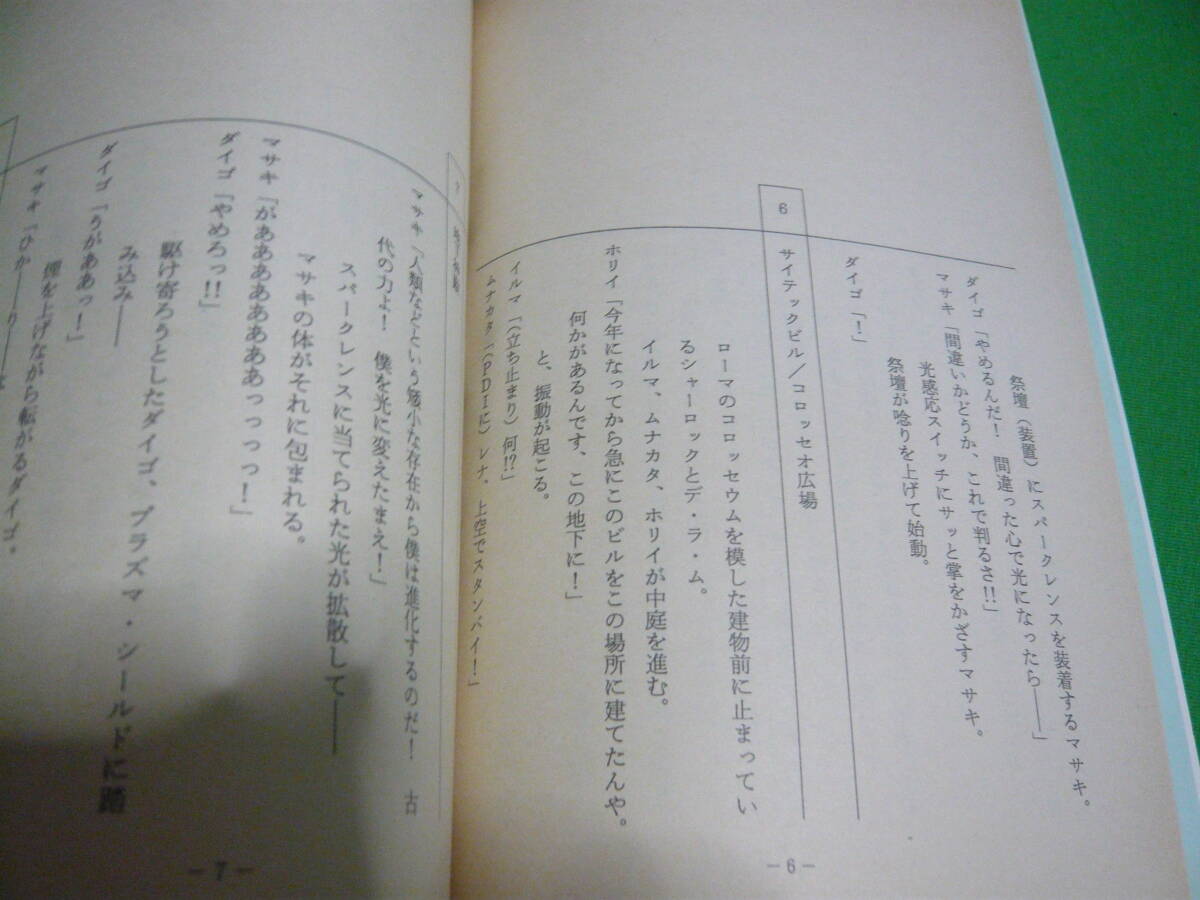 祭壇（装置）にスパークレンスを装着するマサキ。
ダイゴ「やめるんだ！　間違った心で光になったら――」
マサキ「間違いかどうか、これで判るさ!!」
光感応スイッチにサッと掌をかざすマサキ。
祭壇が唸りを上げて始動。
ダイゴ「！」
6　サイテックビル／コロッセオ広場
ローマのコロッセウムを模した建物前に止まってい
るシャーロックとデ・ラ・ム。
イルマ、ムナカタ、ホリイが中庭を進む。
ホリイ「今年になってから急にこのビルをこの場所に建てたんや。
何かがあるんです、この地下に！」
と、振動が起こる。
イルマ「（立ち止まり）何!?」
ムナカタ「（ＰＤＩに）レナ、上空でスタンバイ！」
－6－
7
マサキ「人類などという矮小な存在から僕は進化するのだ！　古
代の力よ！　僕を光に変えたまえ！」
スパークレンスに当てられた光が拡散して――
マサキの体がそれに包まれる。
マサキ「がああああああああっっっ！」
ダイゴ「やめろっ!!」
駆け寄ろうとしたダイゴ、プラズマ・シールドに踏
み込み――
ダイゴ「うがああっ！」
煙を上げながら転がるダイゴ。
マサキ「ひか――り――
－7－